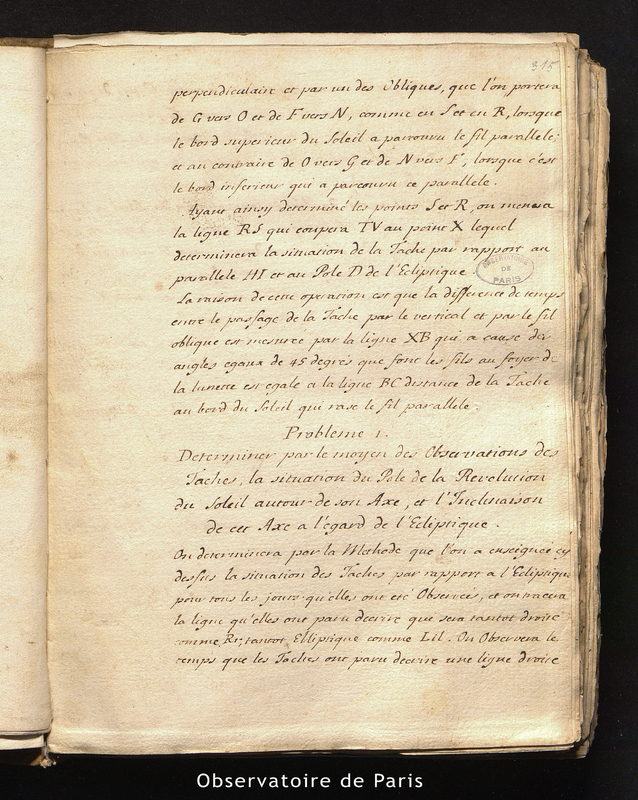 315
perpendiculaire et par un des Obliques, que l'on portera
de G vers O et de F vers N, comme en S et en R, lorsque
le bord superieur du Soleil a parcouru le fil parallele;
et au contraire de O vers G et de N vers F, lorsque c'est
le bord inferieur qui a parcouru ce parallele.
Ayant ainsy determiné les points S et R, on menera
la ligne RS qui coupera TV au point X lequel
determinera la situation de la Tache par rapport au
parallele HI et au Pole D de l'Ecliptique.
OBSERVATOIRE
DE
PARIS
La raison de cette operation est que la difference de temps
entre le passage de la Tache par le vertical et par le fil
oblique est mesurée par la ligne XB qui a cause des
angles egaux de 45 degrés que font les fils au foyer de
la lunette est egale a la ligne BC distance de la Tache
au bord du Soleil qui rase le fil parallele.
Probleme 1.
Determiner par le moyen des Observations des
Taches, la situation du Pole de la Revolution
du Soleil autour de son Axe, et l'Inclinaison
de cet Axe a l'égard de l'Ecliptique.
On determinera par la Methode que l'on a enseignée cy
dessus la situation des Taches par rapport a l'Ecliptique
pour tous les jours qu'elles ont eté Observées, et on tracera
la ligne qu'elles ont paru decrire que sera tantot droite
comme Rr, tantot Elliptique comme Lil. On Observera le
temps que les Taches ont paru decrire une ligne droite
Observatoire de Paris